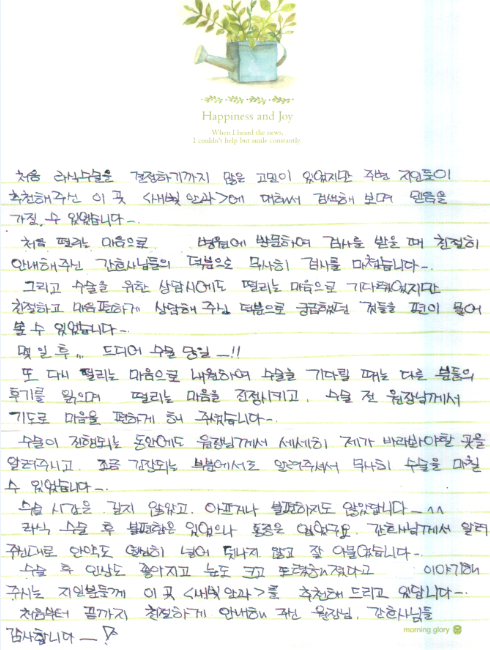 Happiness and Joy
When I heard the news,
I couldn't help but smile constantly
처음 라식수술을 결정하기까지 많은 고민이 있었지만 주변 지인들이
추천해주신 이 곳 <새빛안과>에 대해서 검색해 보며 믿음을
가질 수 있었습니다~.
처음 떨리는 마음으로 병원에 방문하여 검사를 받을 때 친절히
안내해주신 간호사님들의 덕분으로 무사히 검사를 마쳤습니다~.
그리고 수술을 위한 상담시에도 떨리는 마음으로 기다렸었지만
친절하고 마음편하게 상담해 주신 덕분으로 궁금했던 것들을 편히 물어
볼 수 있었습니다~.
몇 일 후,,, 드디어 수술 당일~!!
또 다시 떨리는 마음으로 내원하여 수술을 기다릴 때는 다른 분들의
후기를 읽으며 떨리는 마음을 진정시키고, 수술 전 원장님께서
기도로 마음을 편하게 해 주셨습니다~.
수술이 진행되는 동안에도 원장님께서 세세히 제가 바라봐야할 곳을
알려주시고, 조금 긴장되는 부분에서도 알려주셔서 무사히 수술을 마칠
수 있었습니다~.
수술 시간은 길지 않았고, 아프거나 불편하지도 않았답니다~^^
라식 수술 후 불편함은 있었으나 통증은 없었구요, 간호사님께서 알려
주신대로 안약도 열심히 넣어 덧나지 않고 잘 아물었습니다~.
수술 후 인상도 좋아지고 눈도 크고 또렷해졌다고 이야기해
주시는 지인분들께 이 곳 <새빛안과>를 추천해 드리고 있답니다~.
처음부터 끝까지 친절하게 안내해 주신 원장님, 간호사님들
감사합니다~!
morning glory